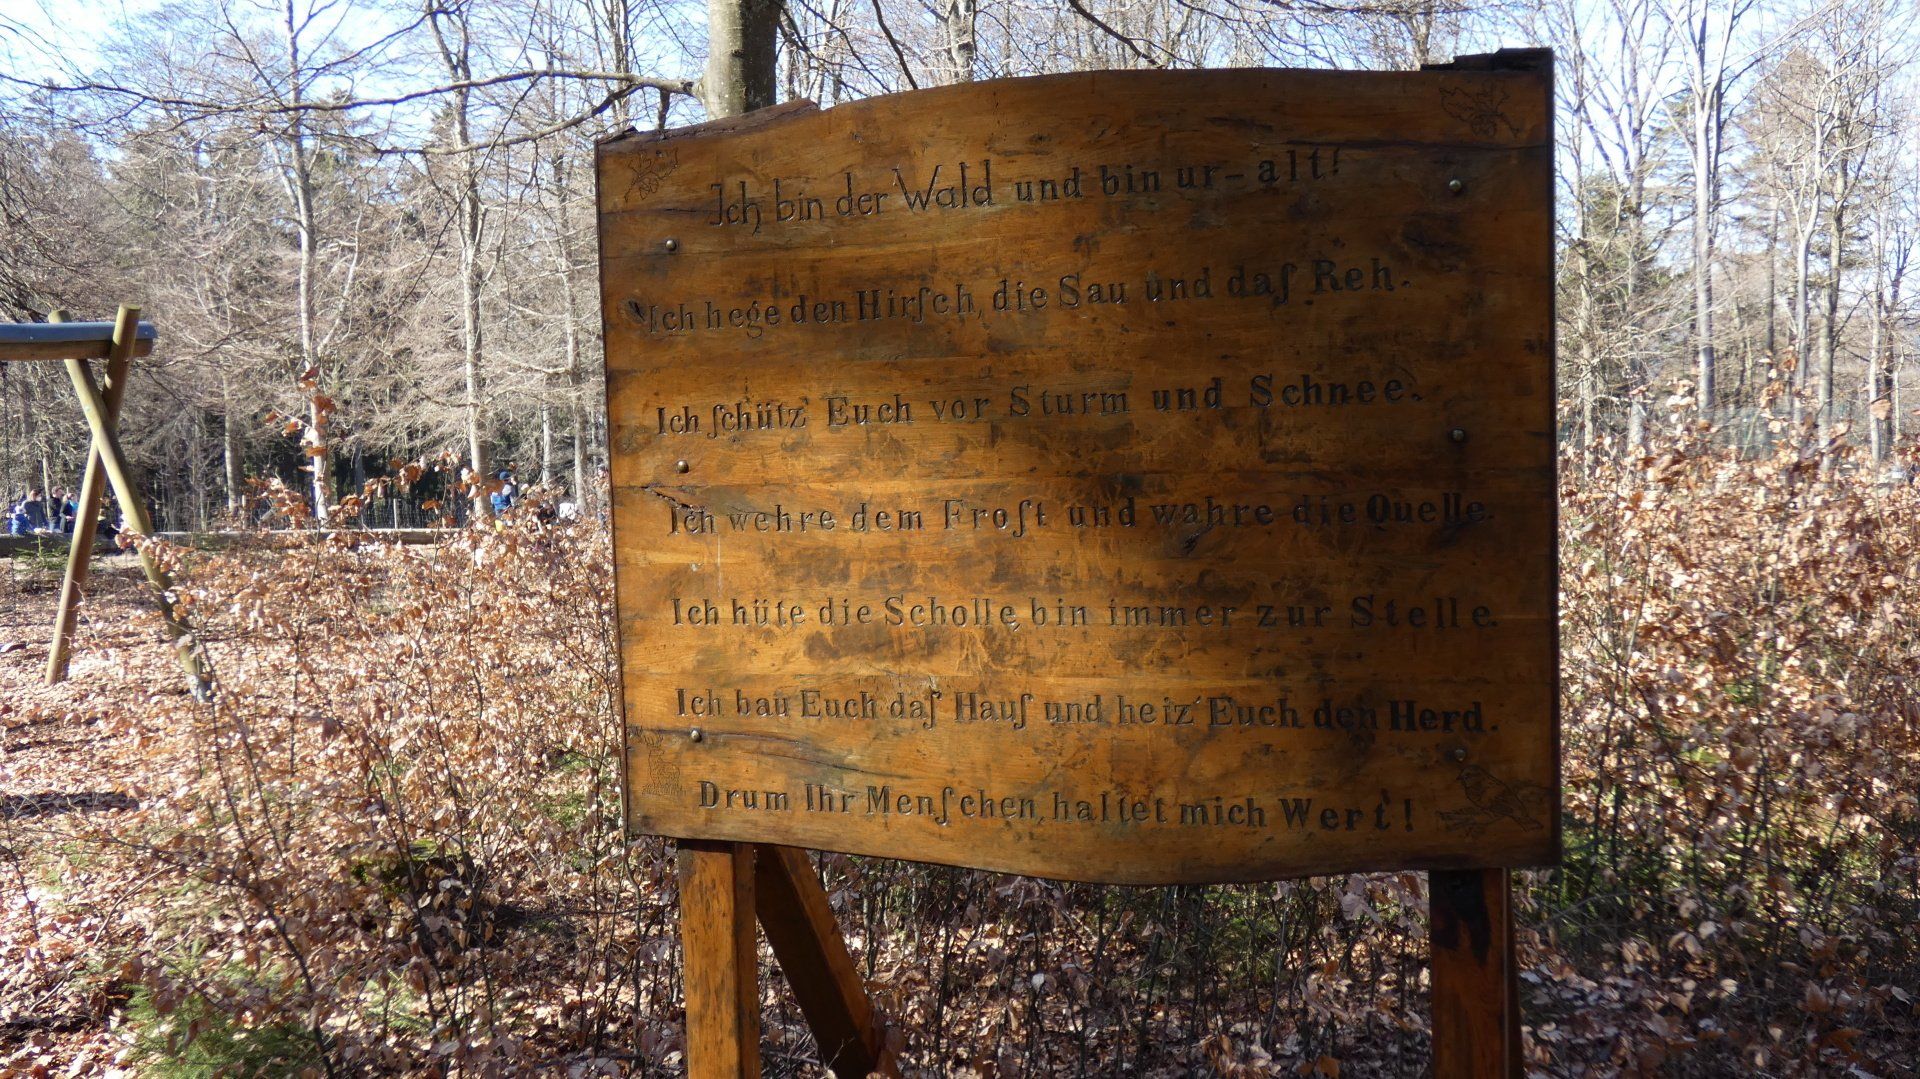 Ich bin der Wald und bin ur-alt!
Ich hege den Hirſch, die Sau und daſ Reh.
Ich ſchütz' Euch vor Sturm und Schnee.
Ich wehre dem Froſt und wahre die Quelle.
Ich hüte die Scholle, bin immer zur Stelle.
Ich bau Euch daſ Hauſ und heiz' Euch den Herd.
Drum Ihr Menſchen, haltet mich Wert!